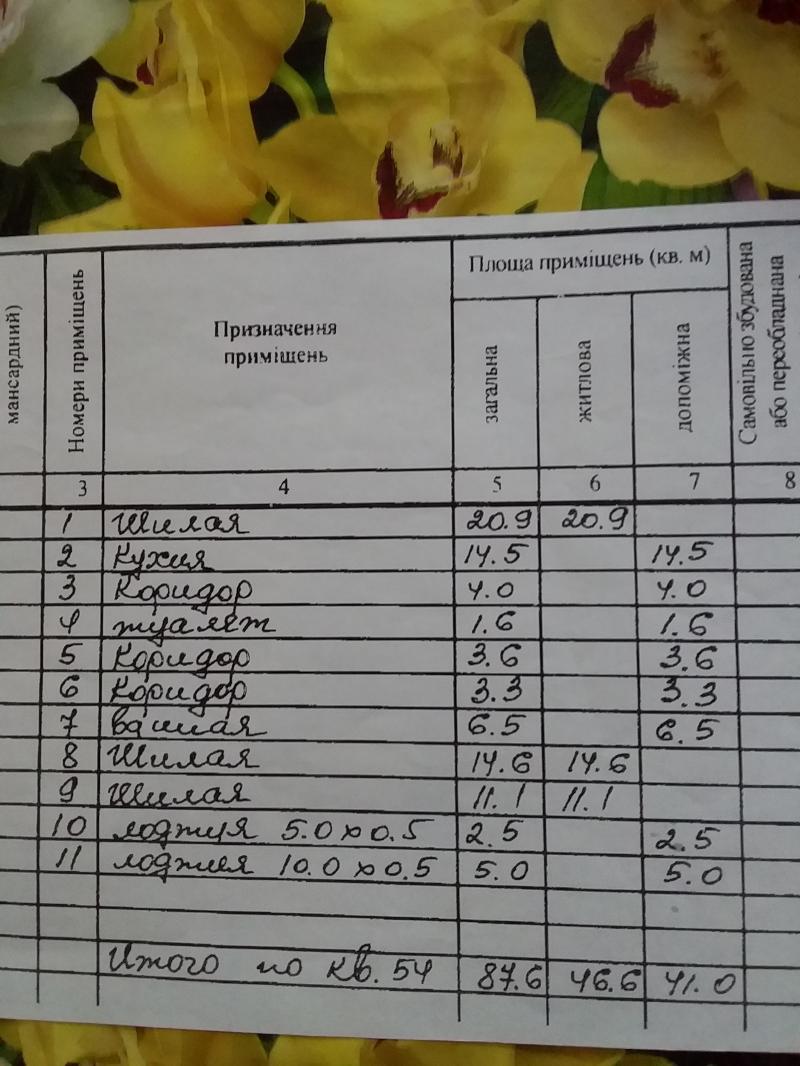 мансардний)
Номери приміщень
Призначення
приміщень
Площа приміщень (кв. м)
загальна
житлова
допоміжна
Самовільно збудована
або переобладнана
3 4 5 6 7 8
1 Жилая 20.9 20.9
2 Кухня 14.5 14.5
3 Коридор 4.0 4.0
4 туалет 1.6 1.6
5 Коридор 3.6 3.6
6 Коридор 3.3 3.3
7 ванная 6.5 6.5
8 Жилая 14.6 14.6
9 Жилая 11.1 11.1
10 лоджия 5.0 x 0.5 2.5 2.5
11 лоджия 10.0 x 0.5 5.0 5.0
Итого по кв. 54 87.6 46.6 41.0